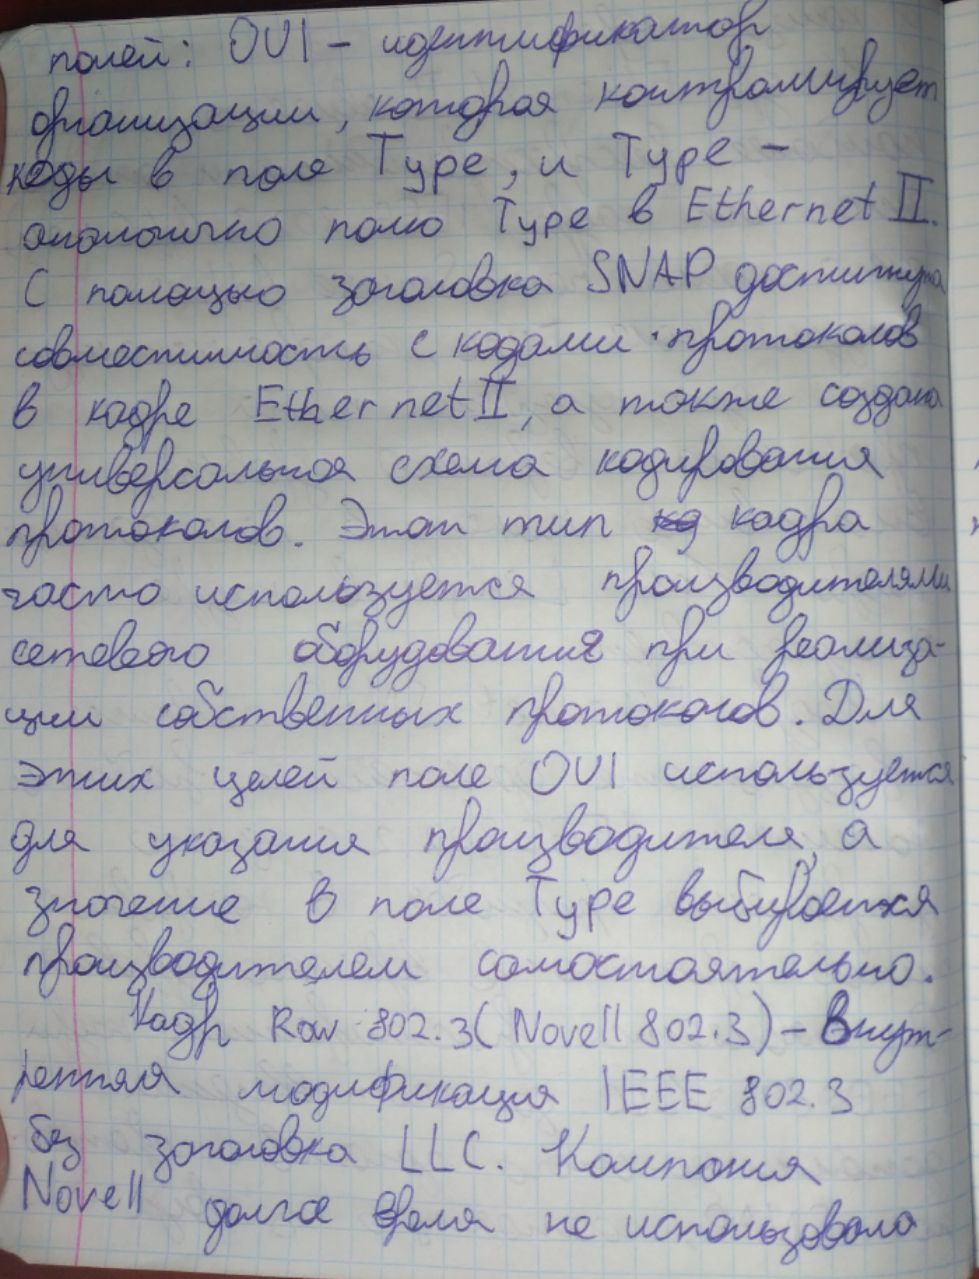 полей: OUI – идентификатор
организации, которая контролирует
коды в поле Type, и Type –
аналогично полю Type в Ethernet II.
С помощью заголовка SNAP достигнута
совместимость с кодами протоколов
в кадре Ethernet II, а также создана
универсальная схема кодирования
протоколов. Этот тип кадра
часто используется производителями
сетевого оборудования при реализа-
ции собственных протоколов. Для
этих целей поле OUI используется
для указания производителя, а
значение в поле Type выбирается
производителем самостоятельно.
Кадр Raw 802.3 (Novell 802.3) – внут-
ренняя модификация IEEE 802.3
без заголовка LLC. Компания
Novell долгое время не использовала